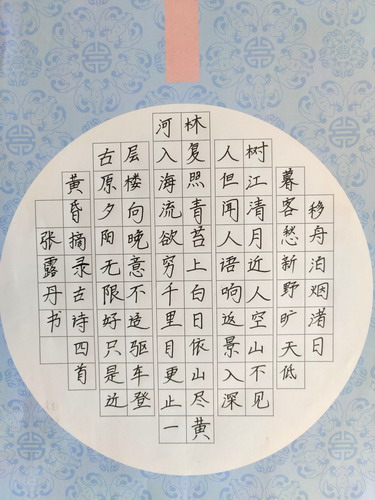 移舟泊烟渚日
暮客愁新野旷天低
树江清月近人空山不见
人但闻人语响返景入深
林复照青苔上白日依山尽黄
河入海流欲穷千里目更止一
层楼向晚意不适驱车登
古原夕阳无限好只是近
黄昏摘录古诗四首
张露丹书